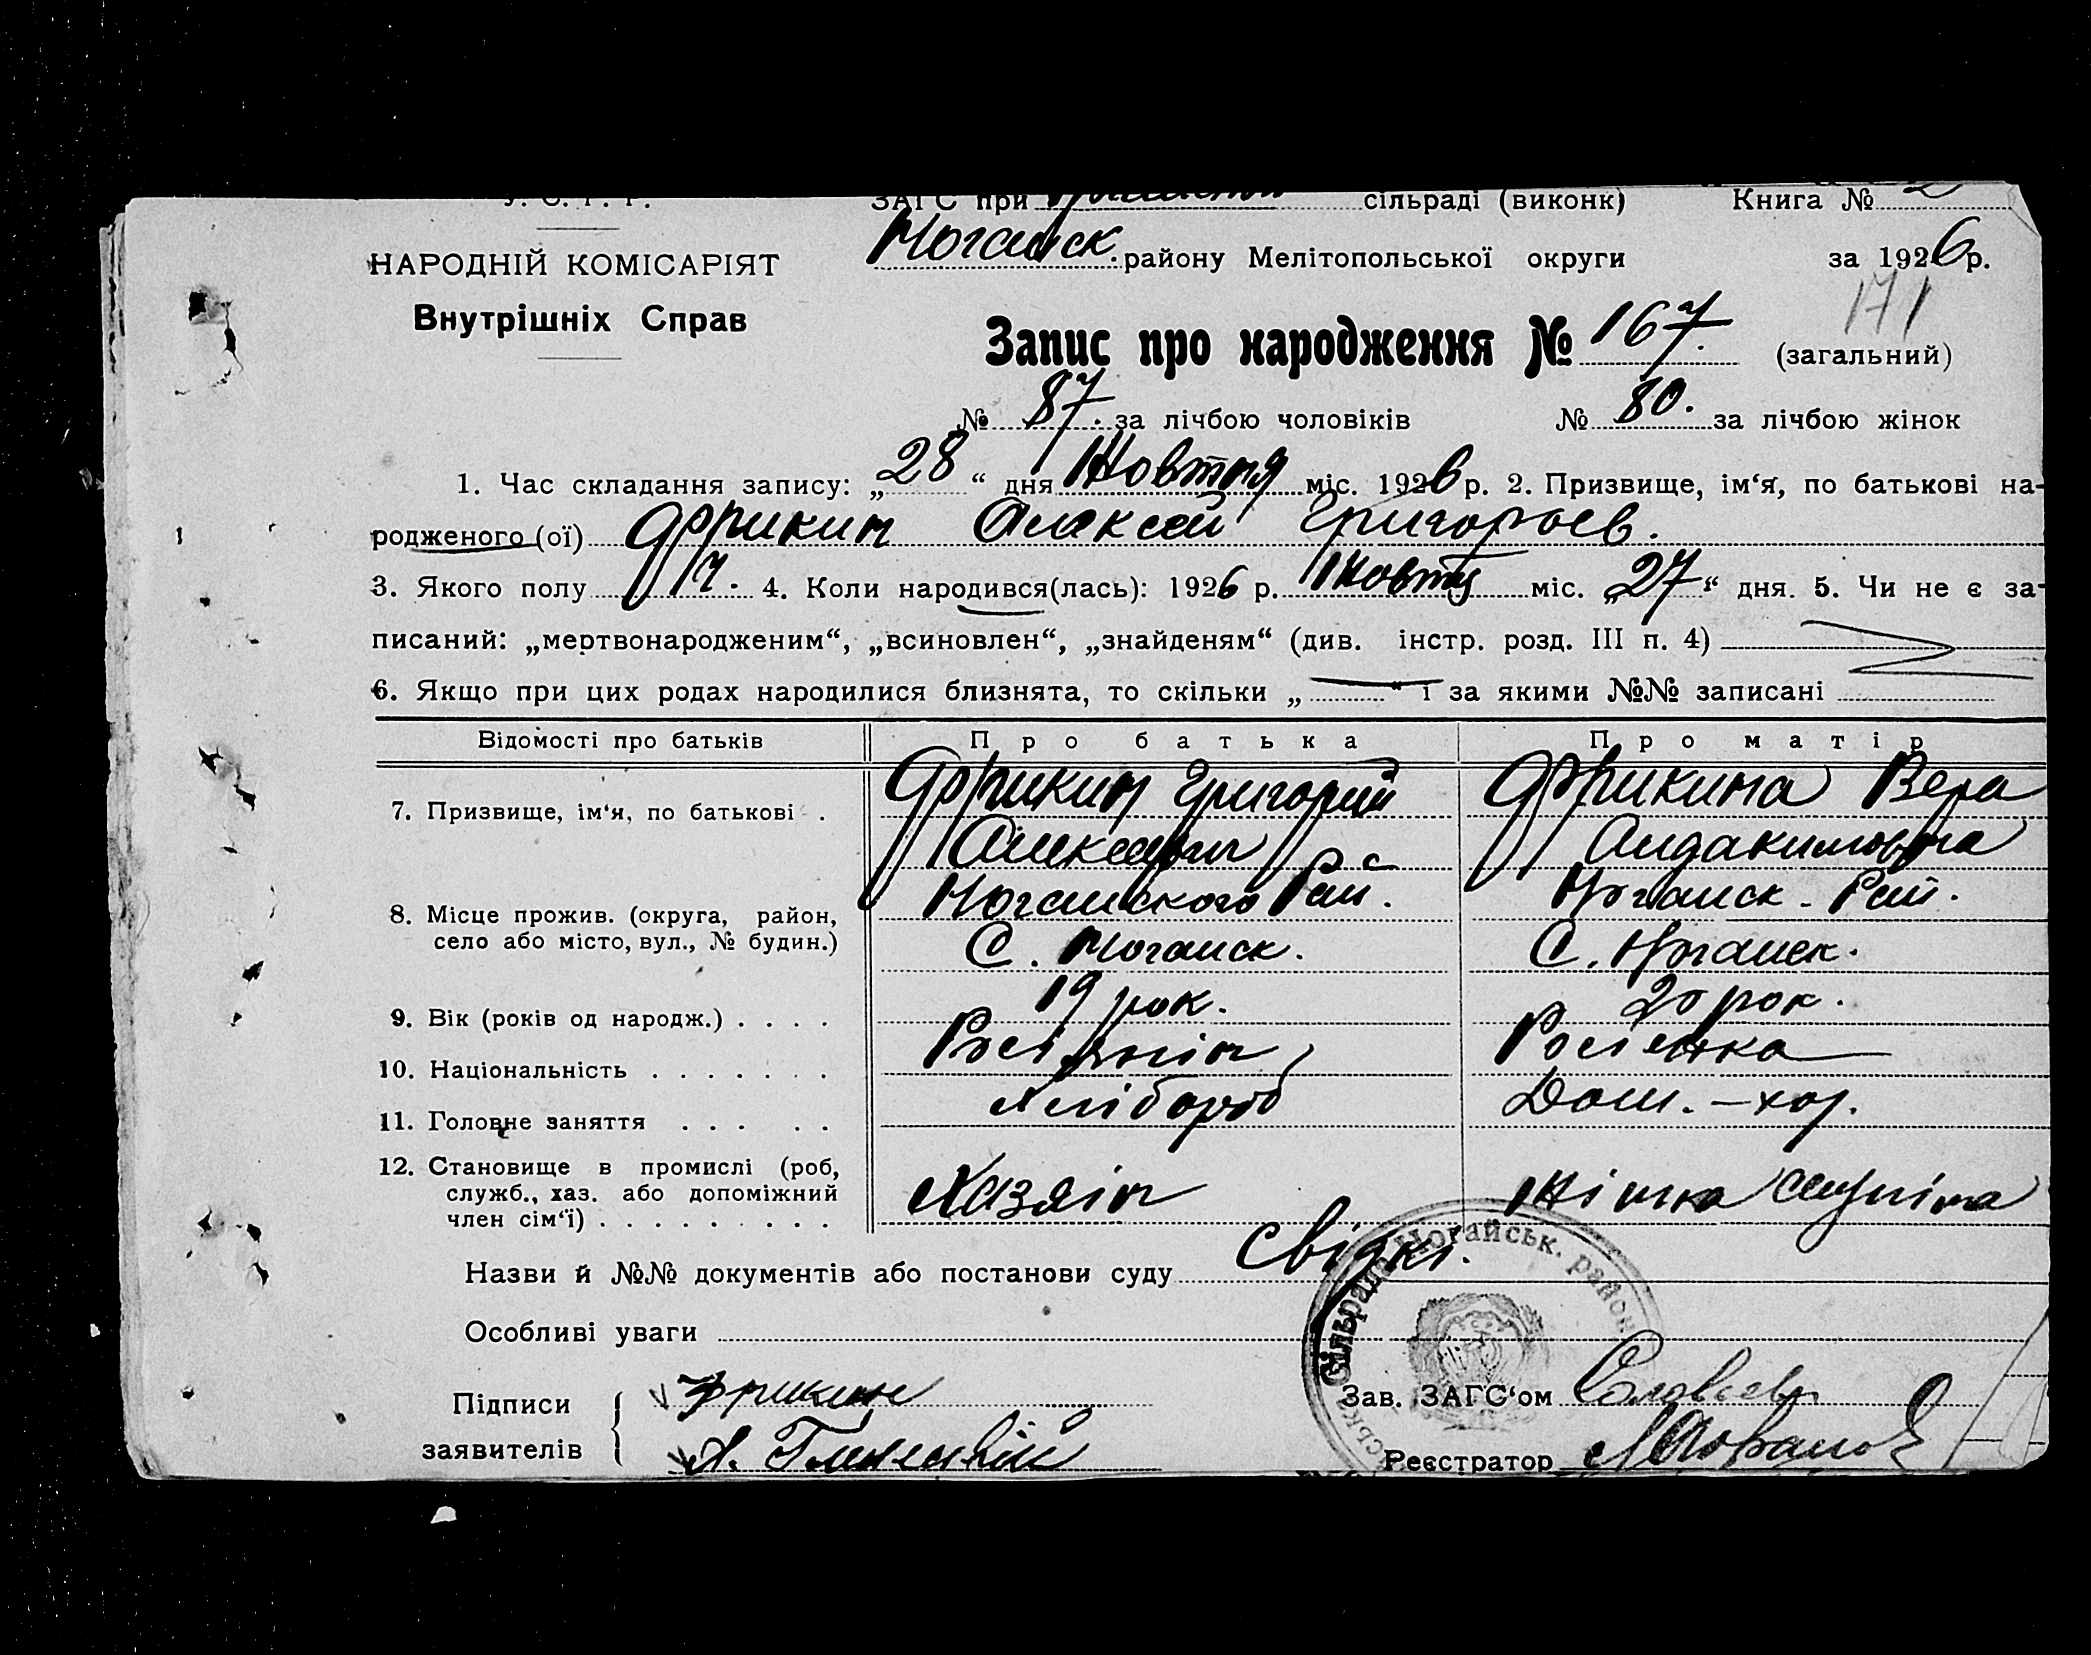 У. С. Р. Р.
ЗАГС при сільраді (виконк) Книга № 2
Ногайск. району Мелітопольської округи за 1926 р.
НАРОДНІЙ КОМІСАРІЯТ
Внутрішніх Справ
171
Запис про народження № 167. (загальний)
№ 87. за лічбою чоловіків № 80. за лічбою жінок
1. Час складання запису: „28“ дня Жовтня міс. 1926 р. 2. Призвище, ім‘я, по батькові на-
родженого (ої) Фрикин Алексей Григорьев.
3. Якого полу Ч. 4. Коли народився(лась): 1926 р. Жовтн міс. „27“ дня. 5. Чи не є за-
писаний: „мертвонародженим“, „всиновлен“, „знайденям“ (див. інстр. розд. III п. 4)
6. Якщо при цих родах народилися близнята, то скільки „—“ і за якими №№ записані
Відомості про батьків Про батька Про матір
7. Призвище, ім‘я, по батькові . Фрикин Григорий Фрикина Вера
8. Місце прожив. (округа, район, Ногайского Рай. Ногайск. Рай.
село або місто, вул., № будин.) С. Ногайск. С. Ногайск.
9. Вік (років од народж.) . . . . 19 рок. 20 рок.
10. Національність . . . . . . . Росіянін Росіянка
11. Головне заняття . . . . . Хлібороб Дом. – хоз.
12. Становище в промислі (роб,
служб., хаз. або допоміжний Хазяін Жінка
член сім‘ї) . . . . . . . . .
Назви й №№ документів або постанови суду Свідкі.
Особливі уваги
Сільрада Ногайськ. район
Підписи Фрикин Зав. ЗАГС‘ом
заявителів Реєстратор